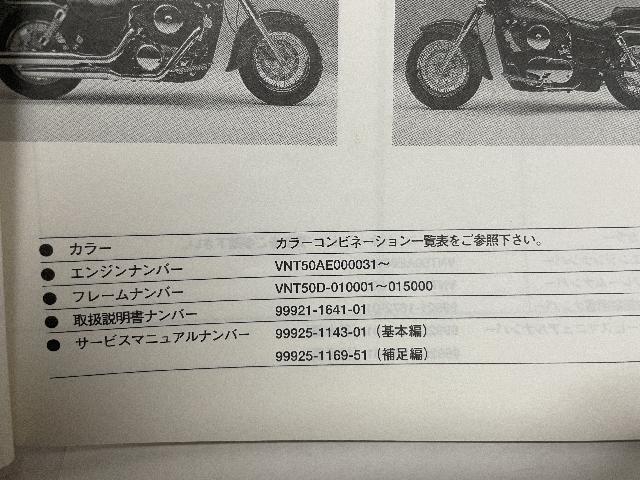 ● カラー カラーコンビネーション一覧表をご参照下さい。
● エンジンナンバー VNT50AE000031〜
● フレームナンバー VNT50D-010001〜015000
● 取扱説明書ナンバー 99921-1641-01
● サービスマニュアルナンバー 99925-1143-01（基本編）
99925-1169-51（補足編）